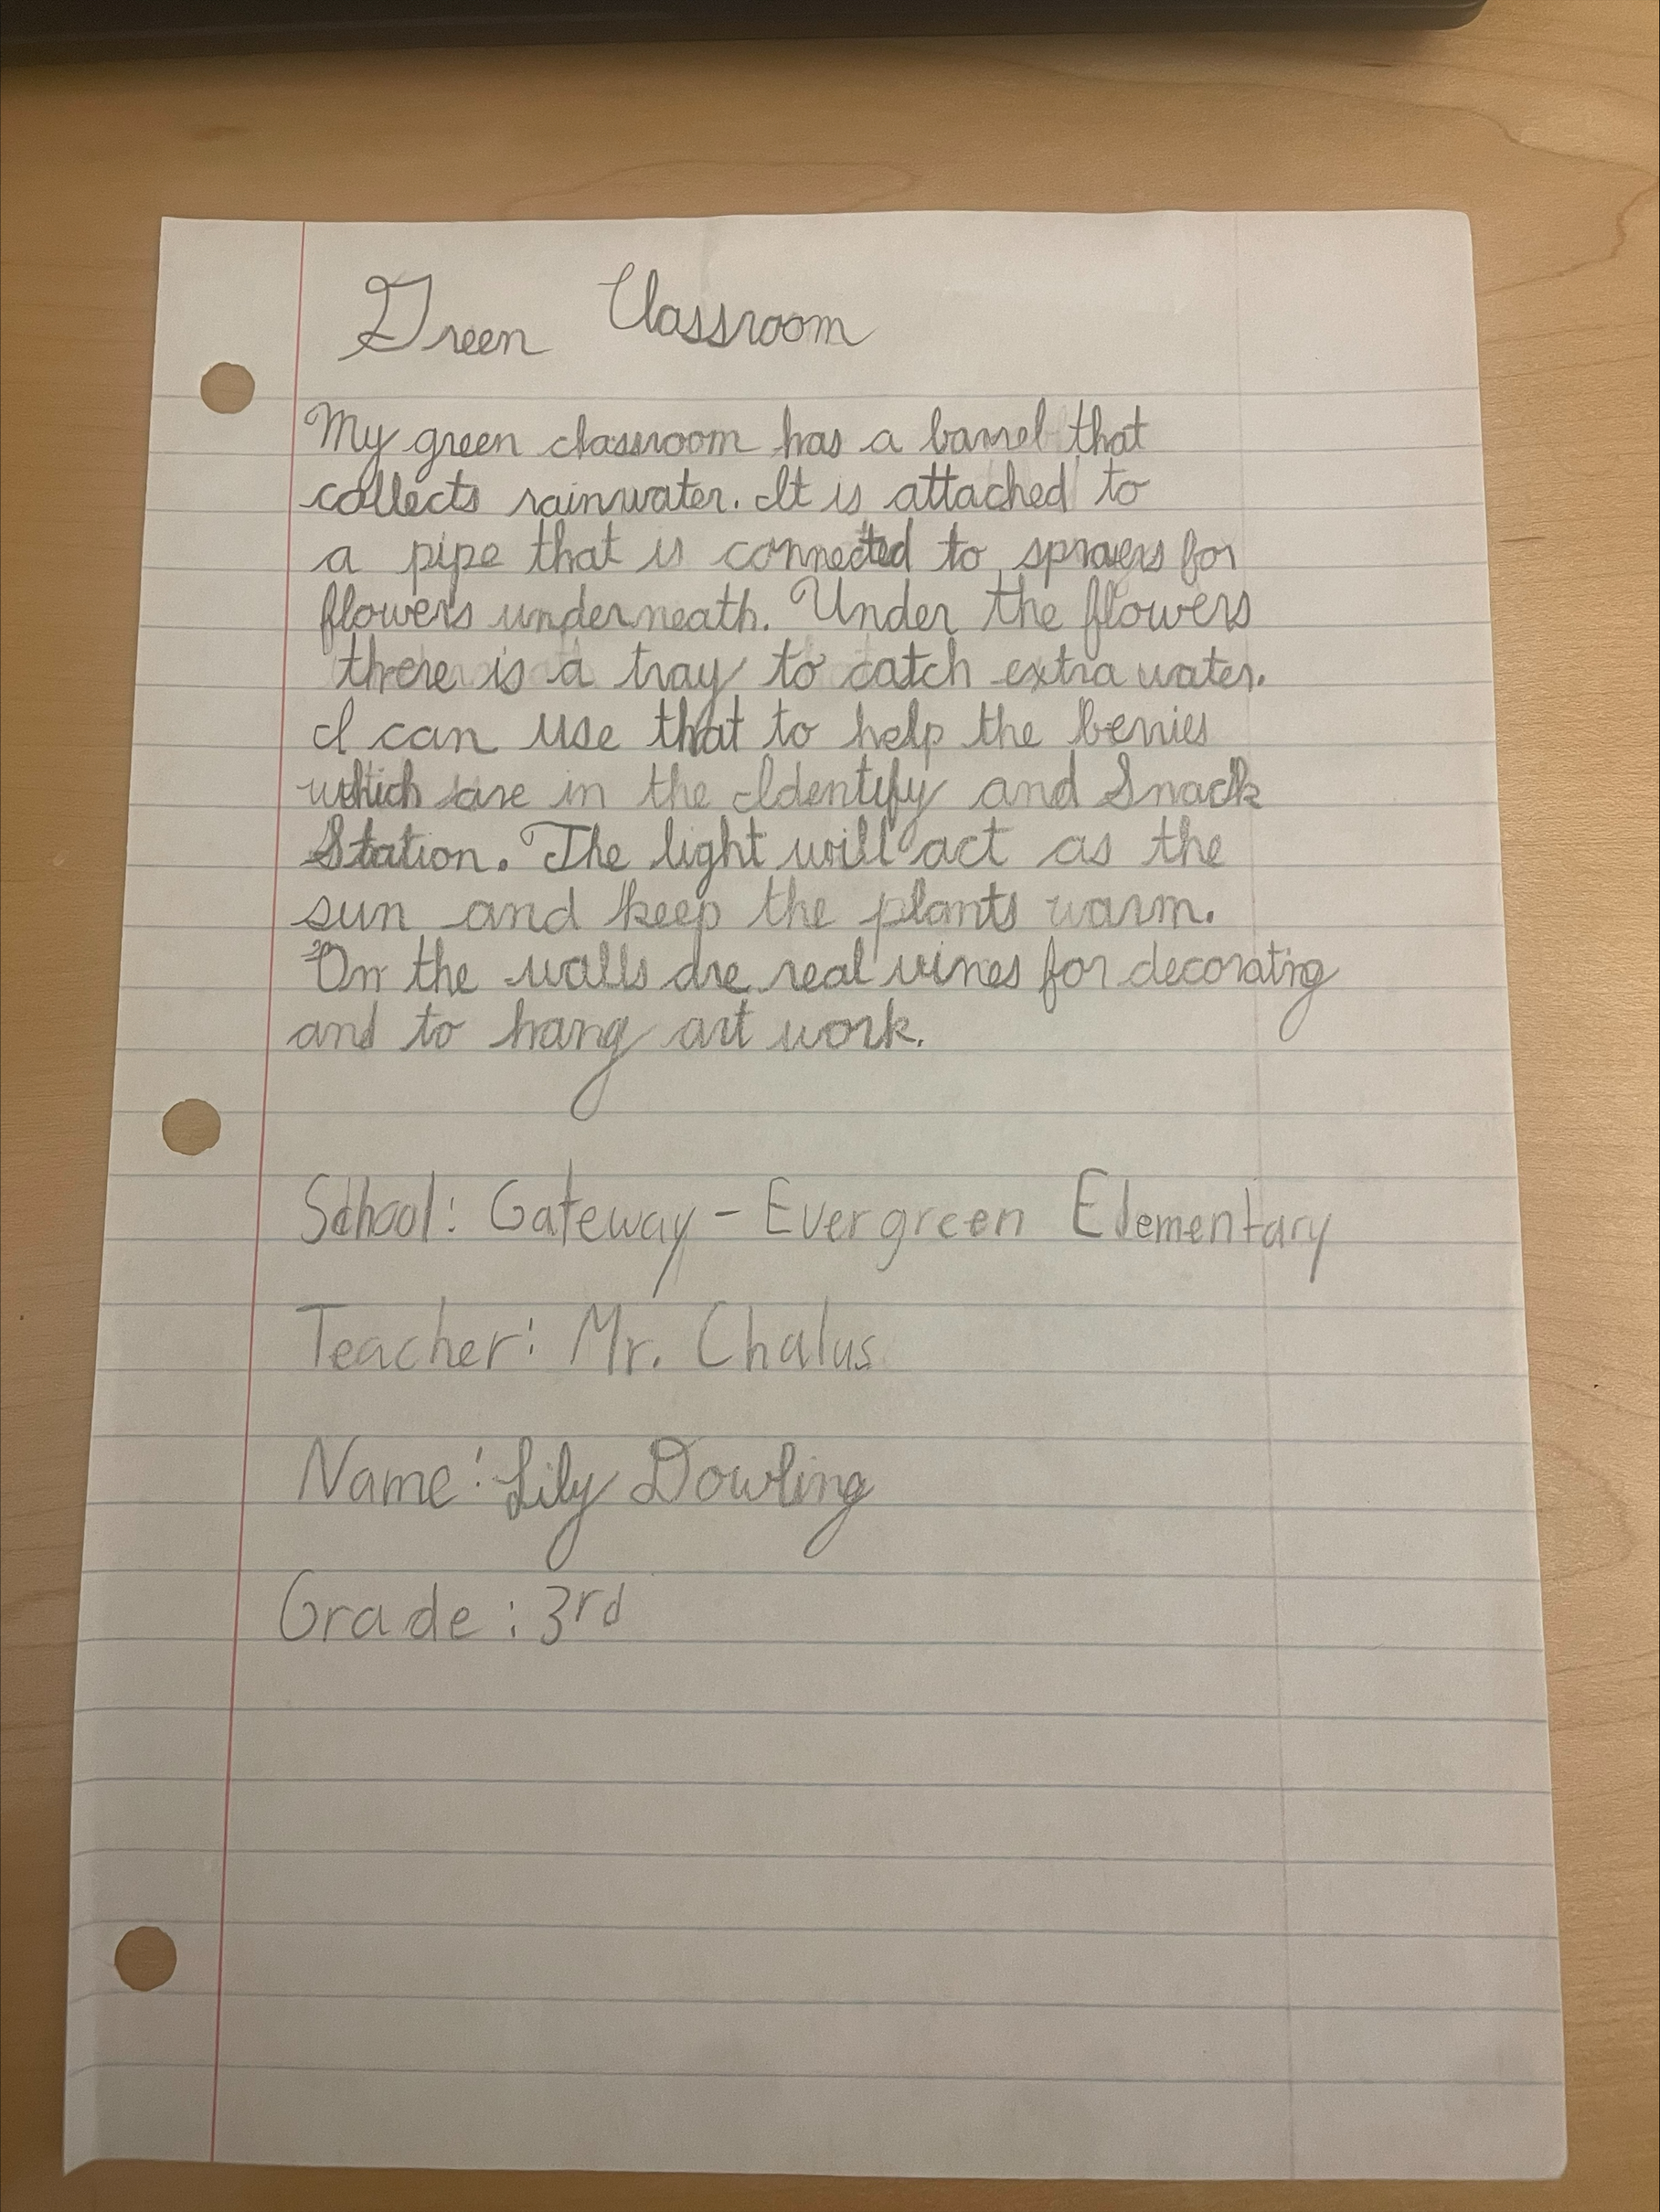 Green Classroom
My green classroom has a barrel that
collects rainwater. It is attached to
a pipe that is connected to sprayers for
flowers underneath. Under the flowers
there is a tray to catch extra water.
I can use that to help the berries
which are in the Identify and Snack
Station. The light will act as the
sun and keep the plants warm.
On the walls are real vines for decorating
and to hang art work.
School: Gateway - Evergreen Elementary
Teacher: Mr. Chalus
Name: Lily Dowling
Grade: 3rd